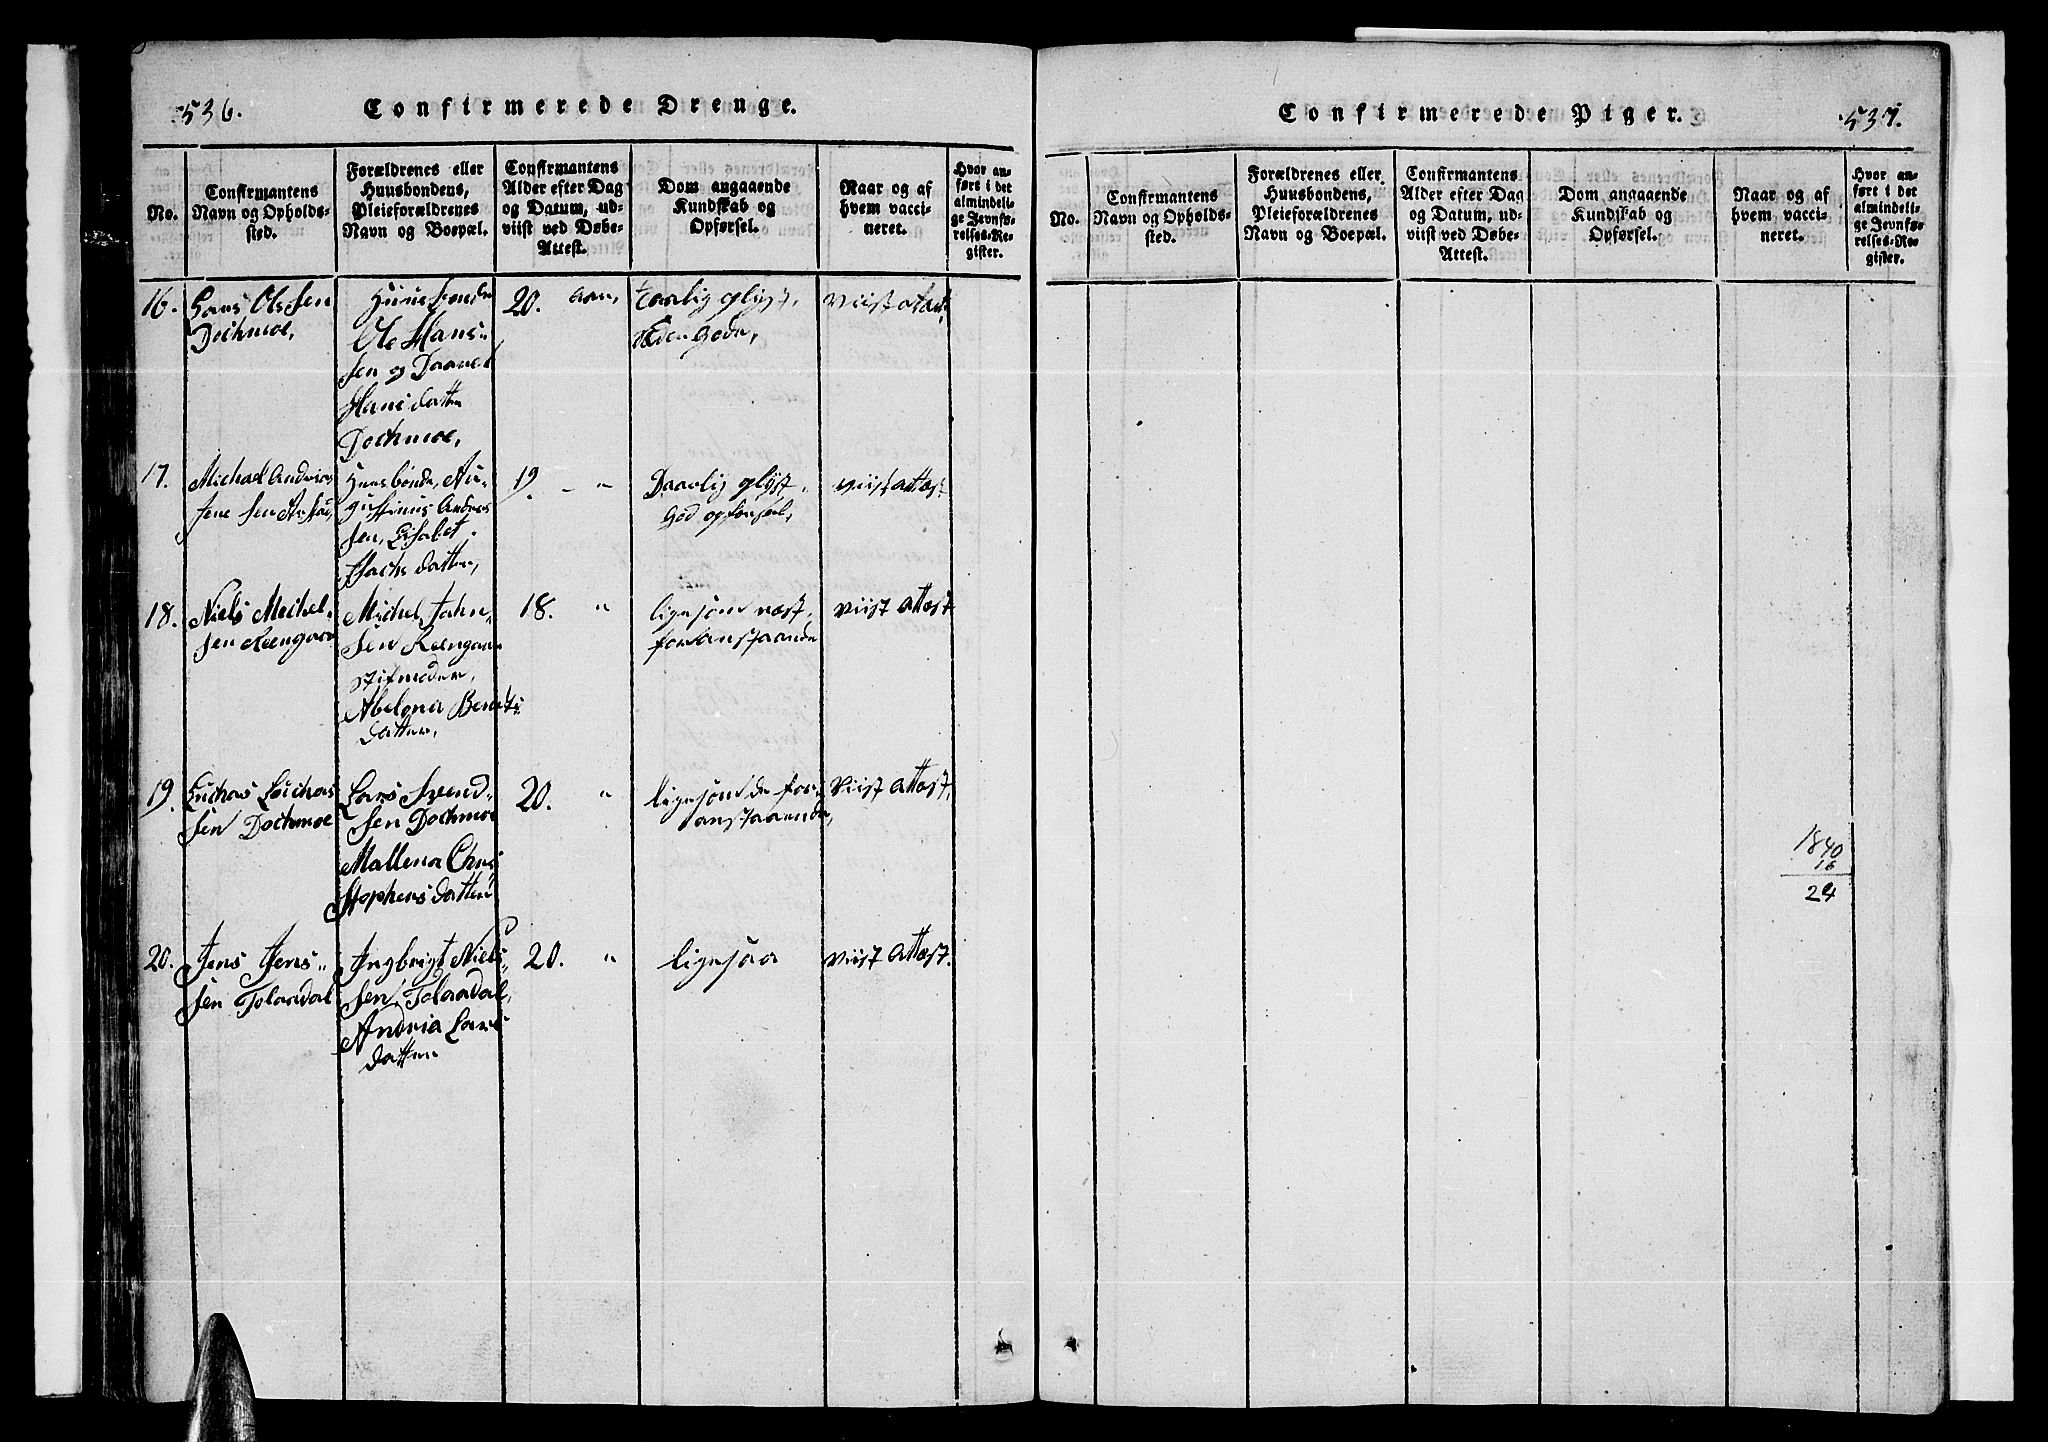 536.
Confirmerede Drenge.
No.
Confirmantens
Navn og Opholds-
sted.
Forældrenes eller
Huusbondens,
Pleieforældrenes
Navn og Boepæl.
Confirmantens
Alder efter Dag
og Datum, ud-
viist ved Døbe-
Attest.
Dom angaaende
Kundskab og
Opførsel.
Naar og af
hvem vacci-
neret.
Hvor an-
ført i det
almindeli-
ge Jevnfø-
relses-Re-
gister.
16.
Hans Olssen
Dochmoe,
Huusbonde
Ole Hans-
sen og Daaret
Hansdatter
Dochmoe,
20. aar,
taarlig oplyst,
Sæder gode,
viist atæst
17.
Michael Andrias
sen
Huusbonde Au-
gustinus Andreas
sen, Elisabet
datter,
19. - "
Daarlig oplyst,
God opførsel,
viist attæst
18.
Niels Michel-
sen Reengaar
Michel Jahn-
sen Reengaar
stifmoder,
Abelona Bernts
datter,
18. "
ligesom næst
foranstaaende
viist attæst
19.
Luchas Luchas
sen Dochmoe
Lars Svend-
sen Dochmoe
Mallena Chri
stophersdatter
20. "
ligesom de for-
anstaaende,
viist attæst.
20.
Jens Jens-
sen Tolaadal
Ingbrigt Niels-
sen, Tolaadal,
Andria Lars
datter
20. "
ligesaa
viist attæst.
Confirmerede Piger.
537.
No.
Confirmantens
Navn og Opholds-
sted.
Forældrenes eller
Huusbondens,
Pleieforældrenes
Navn og Boepæl.
Confirmantens
Alder efter Dag
og Datum, ud-
viist ved Døbe-
Attest.
Dom angaaende
Kundskab og
Opførsel.
Naar og af
hvem vacci-
neret.
Hvor an-
ført i det
almindeli-
ge Jevnfø-
relses-Re-
gister.
1840
16
24